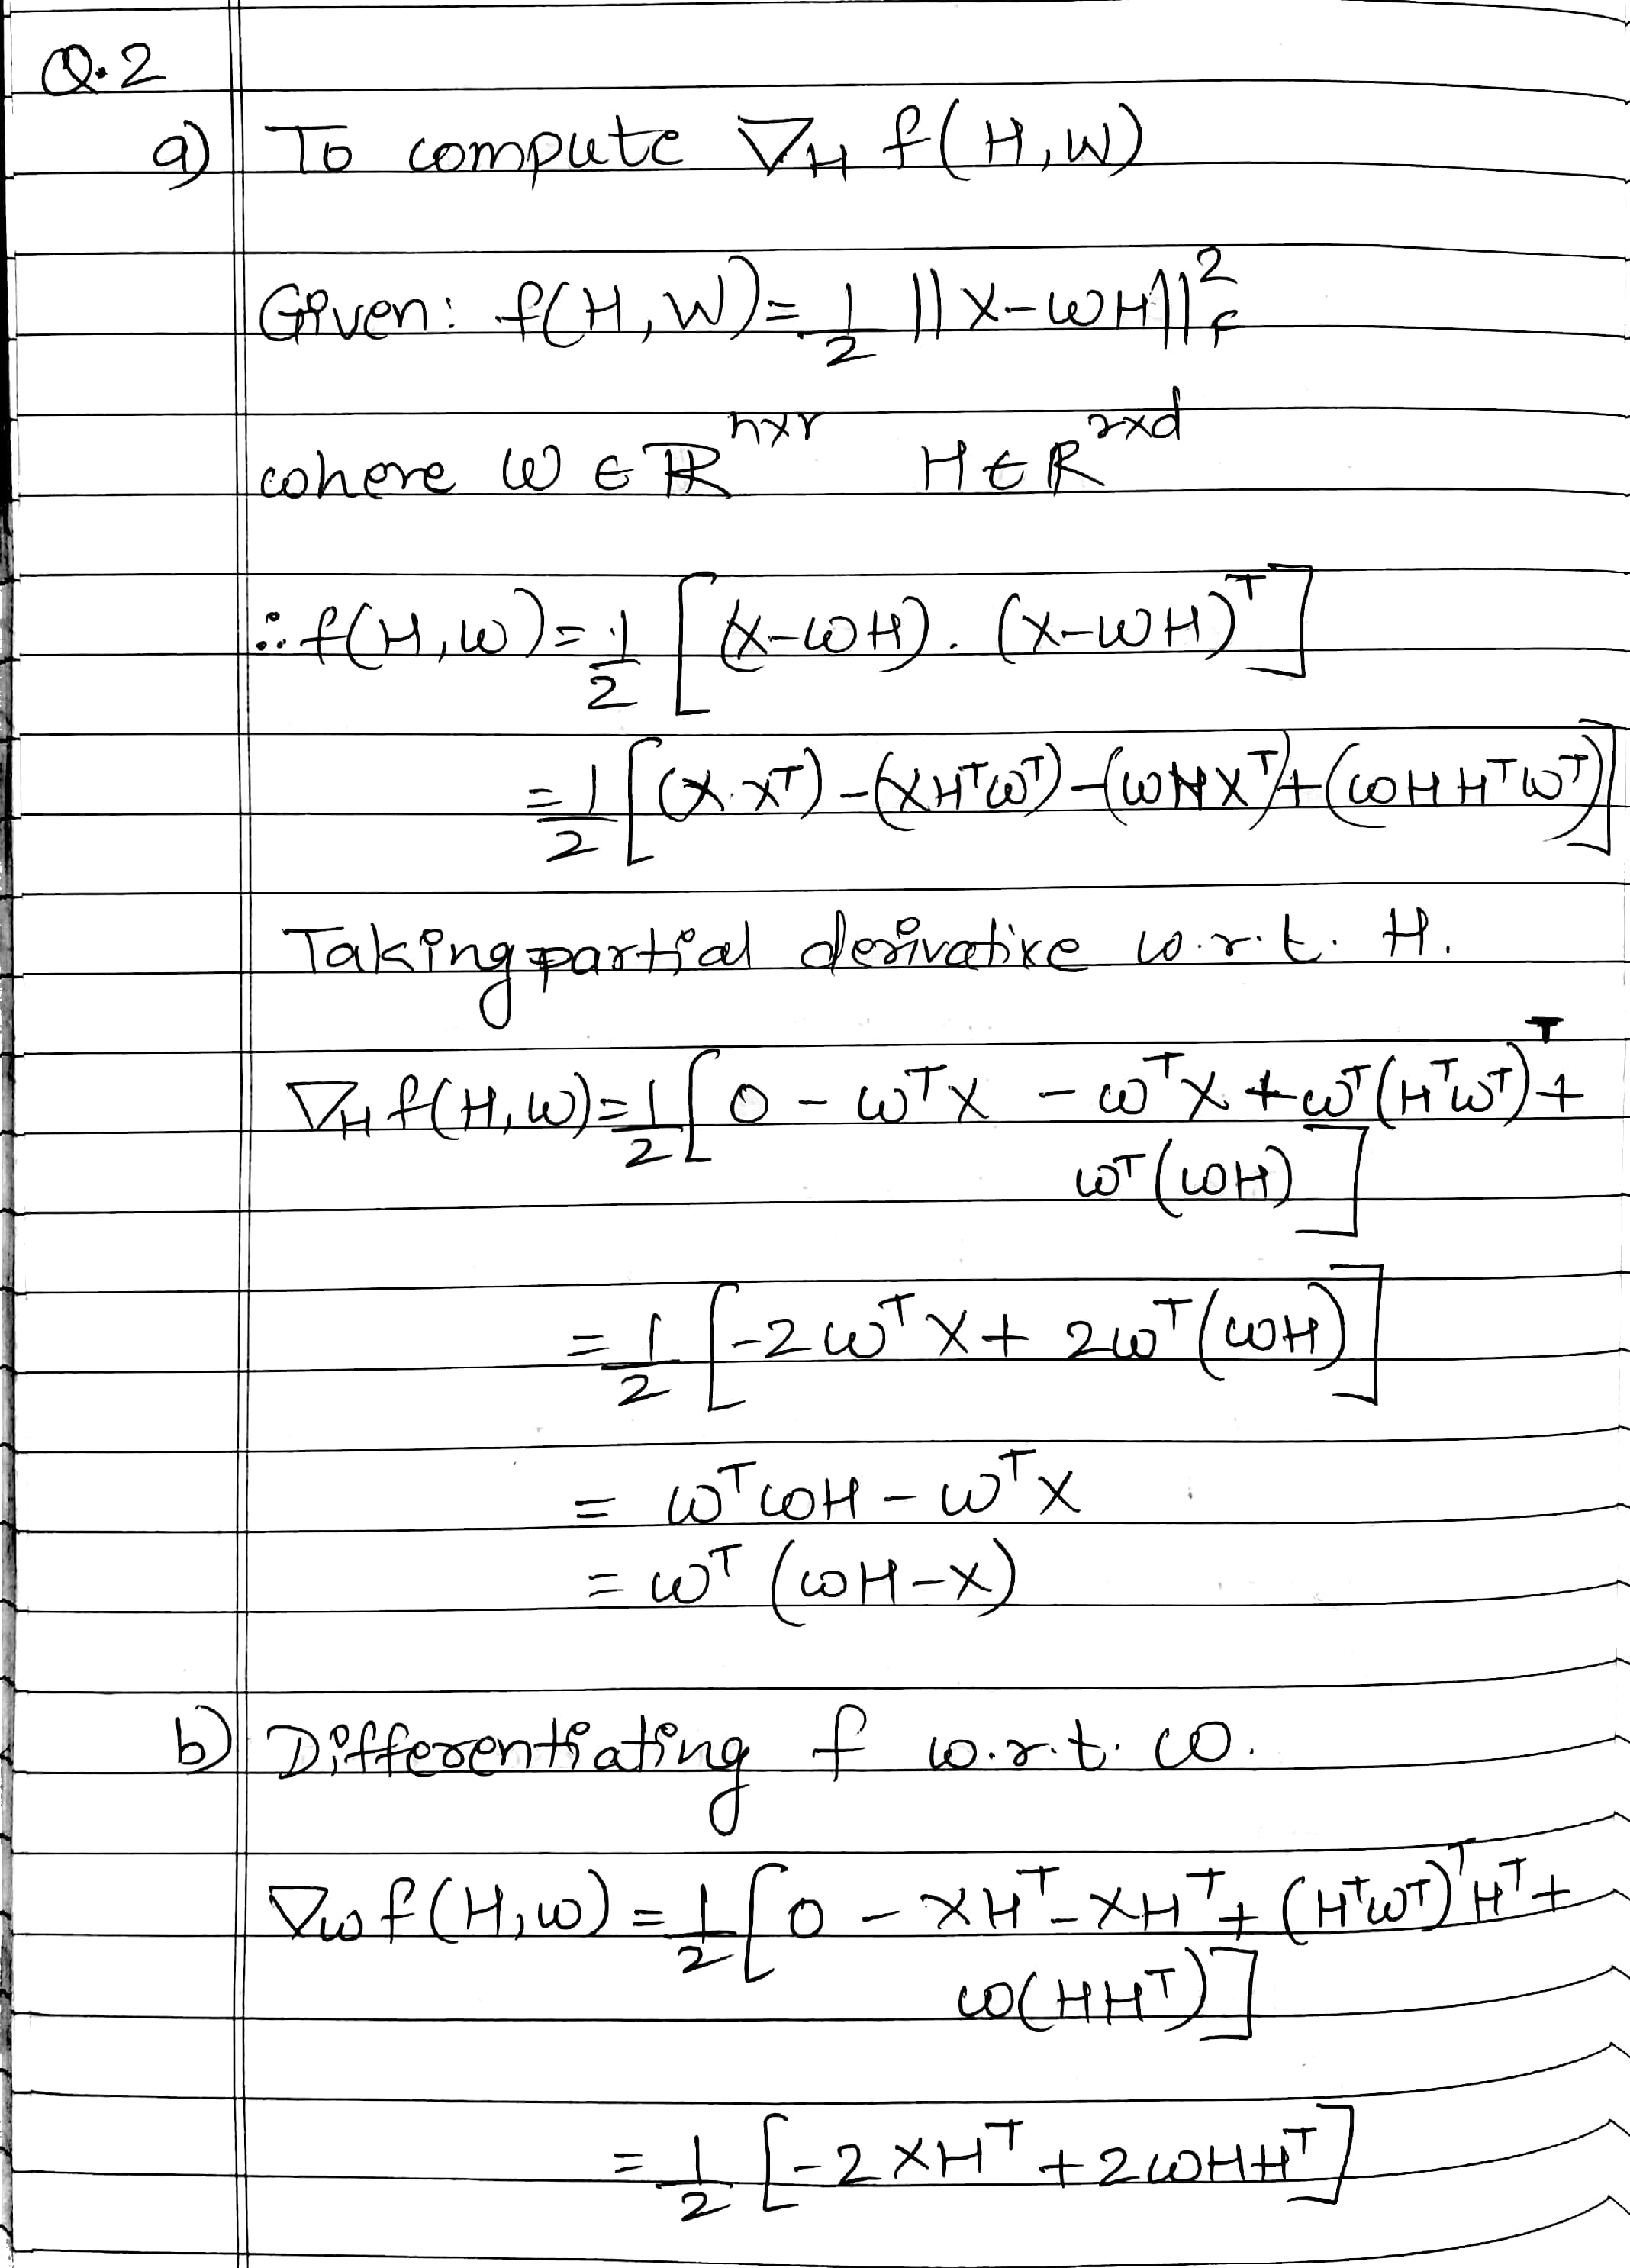 Q.2
a) To compute ∇_H f(H,W)
Given: f(H,W) = 1/2 ||X-WH||²_F
where W ∈ R^{n×r} H ∈ R^{r×d}
∴ f(H,W) = 1/2 [(X-WH).(X-WH)^T]
= 1/2 [(X.X^T) - (XH^TW^T) - (WHX^T) + (WHH^TW^T)]
Taking partial derivative w.r.t. H.
∇_H f(H,W) = 1/2 [0 - W^TX - W^TX + W^T(H^TW^T)^T +
W^T(WH)]
= 1/2 [-2W^TX + 2W^T(WH)]
= W^TWH - W^TX
= W^T(WH-X)
b) Differentiating f w.r.t. W.
∇_W f(H,W) = 1/2 [0 - XH^T - XH^T + (H^TW^T)^TH^T +
W(HH^T)]
= 1/2 [-2XH^T + 2WHH^T]